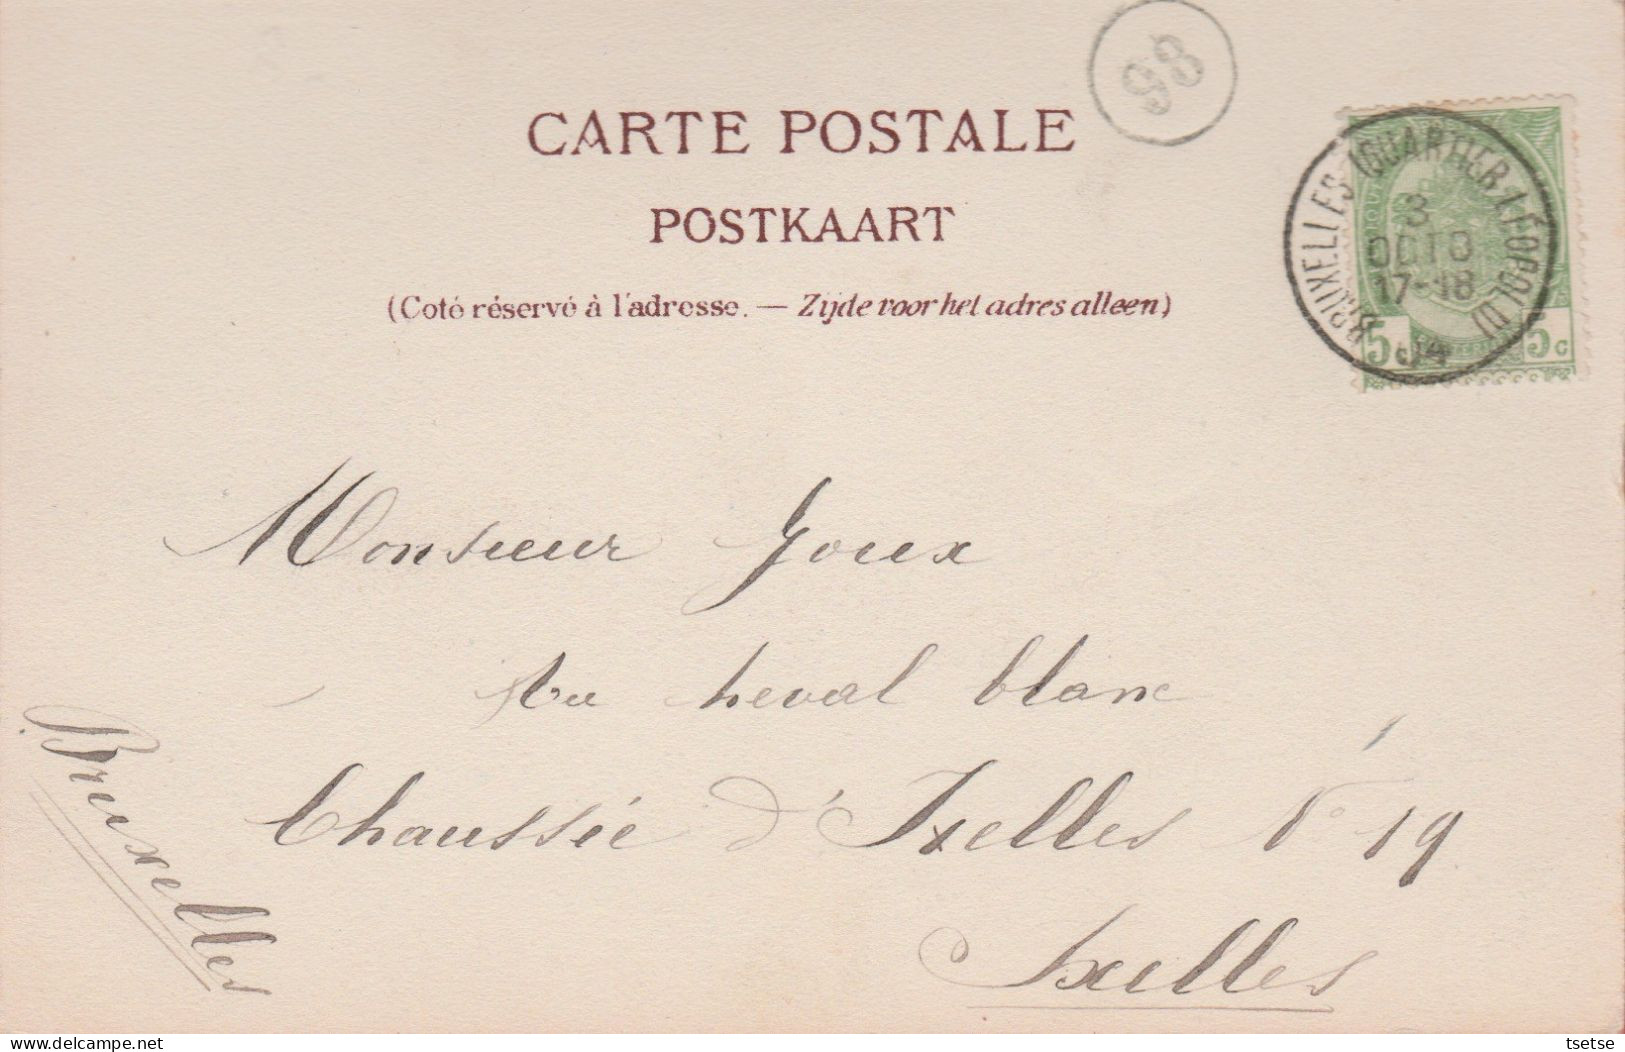 98
CARTE POSTALE
POSTKAART
(Coté réservé à l'adresse. — Zijde voor het adres alleen)
BRUXELLES (QUARTIER-LÉOPOLD)
3
OCTO
17-18
04
5 5c
Monsieur Joux
Au heval blanc
Chaussée d'Ixelles N° 19
Ixelles
Bruxelles
delcampe.net
tsetse